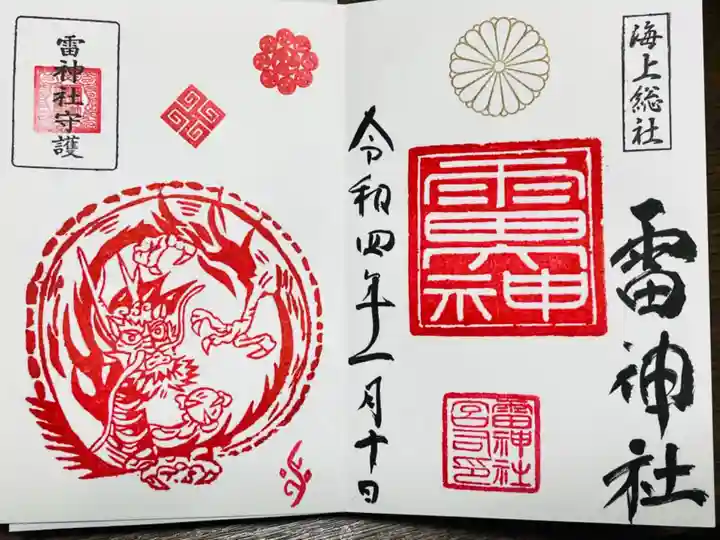 海上総社
雷神社
雷神社
宮司印
令和四年十一月十日
雷神社守護